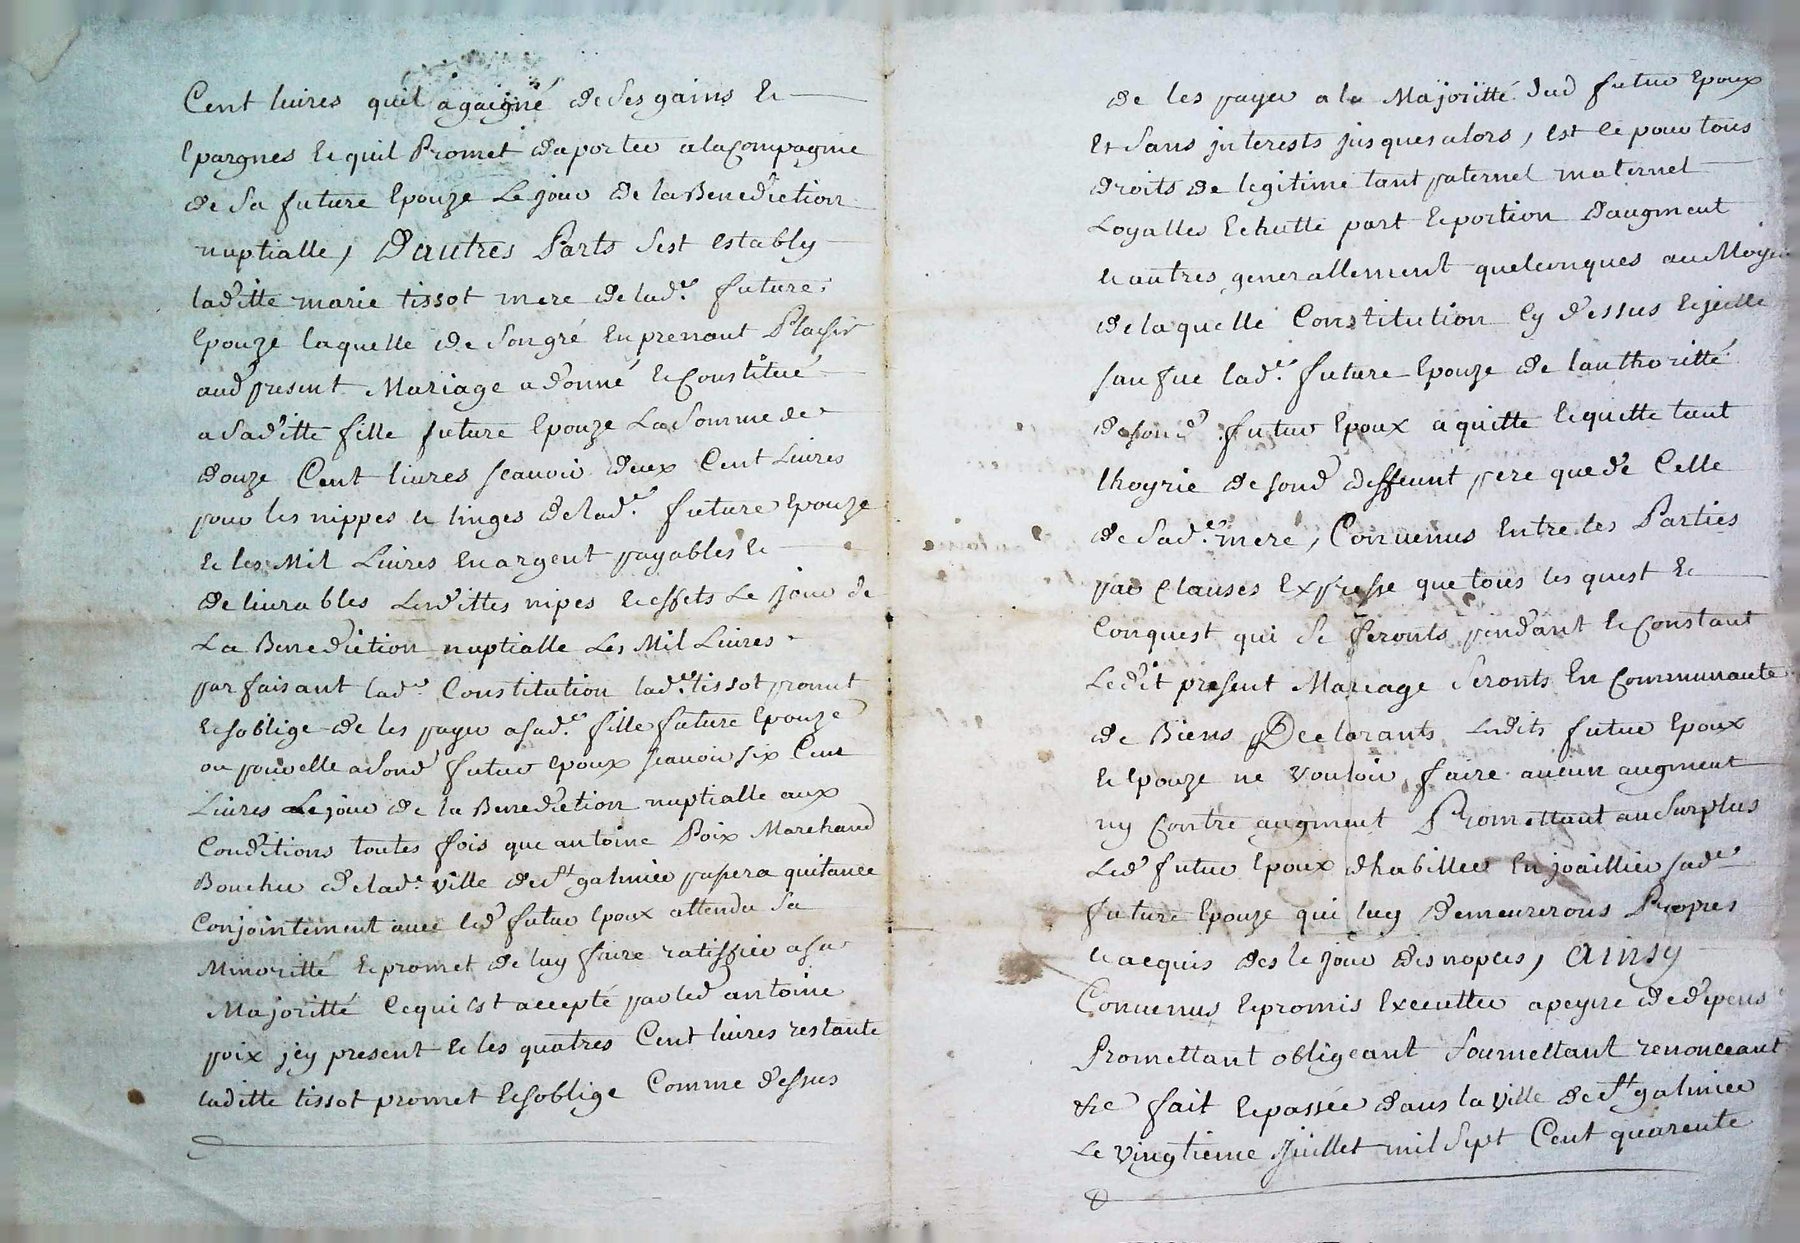 Cent livres quil a gaigné de ses gains et
Epargnes et quil Promet daporter a la Compagnie
de Sa future Epouze Le jour de la Benediction
nuptialle, D'autres Parts s'est estably
laditte marie tissot mere de lad.e future
Epouze laquelle de Son gré En prenant Plaisir
aud present Mariage a donné et Constitué
a Saditte fille future Epouze La Somme de
douze Cent livres scavoir deux Cent Livres
pour les nippes et linges de lad.e future Epouze
et les Mil Livres En argent payables et
delivrables Lesdittes nipes et effets Le jour de
La Benediction nuptialle Les Mil Livres
parfaisant lad.e Constitution lad.e tissot promet
et soblige de les payer a sad.e fille future Epouze
ou pour elle a Sond futur Epoux scavoir six Cent
Livres Le jour de la Benediction nuptialle aux
Conditions toutes fois que antoine Poix Marchand
Boucher de lad.e ville de st galmier passera quitance
Conjointement avec led futur Epoux attendu Sa
Minoritté et promet de luy faire ratiffier a sa
Majoritté Ce qui Est accepté par led antoine
poix jcy present et les quatres Cent livres restante
laditte tissot promet et soblige Comme dessus
de les payer a la Majoritté dud futur Epoux
Et Sans jnterests jusques alors, Est ce pour tous
droits de legitime tant paternel maternel
Loyalles Echutte part et portion daugment
et autres generallement quelconques au Moyen
de laquelle Constitution Cy dessus et jcelle
sauf lad.e future Epouze de lauthoritté
de son d futur Epoux a quitte et quitte tant
lhoyrie de sond deffunt pere que de Celle
de Sad.e mere, Convenus Entre les Parties
par Clauses Expresse que tous les quest et
Conquest qui Se feronts pendant et Constant
Ledit present Mariage Seronts En Communauté
de Biens Declarants Lesdits futur Epoux
et Epouze ne vouloir faire aucun augment
ny Contre augment Promettant au Surplus
Led futur Epoux dhabiller Enjoaillier sad.e
future Epouze qui luy demeurerons Propres
et acquis des le jour des nopces, Ainsy
Convenus et promis Executter a peyne de depens
Promettant obligeant Soumettant renonceant
&c fait et passée dans la ville de st galmier
Le vingtieme Juillet mil Sept Cent quarente